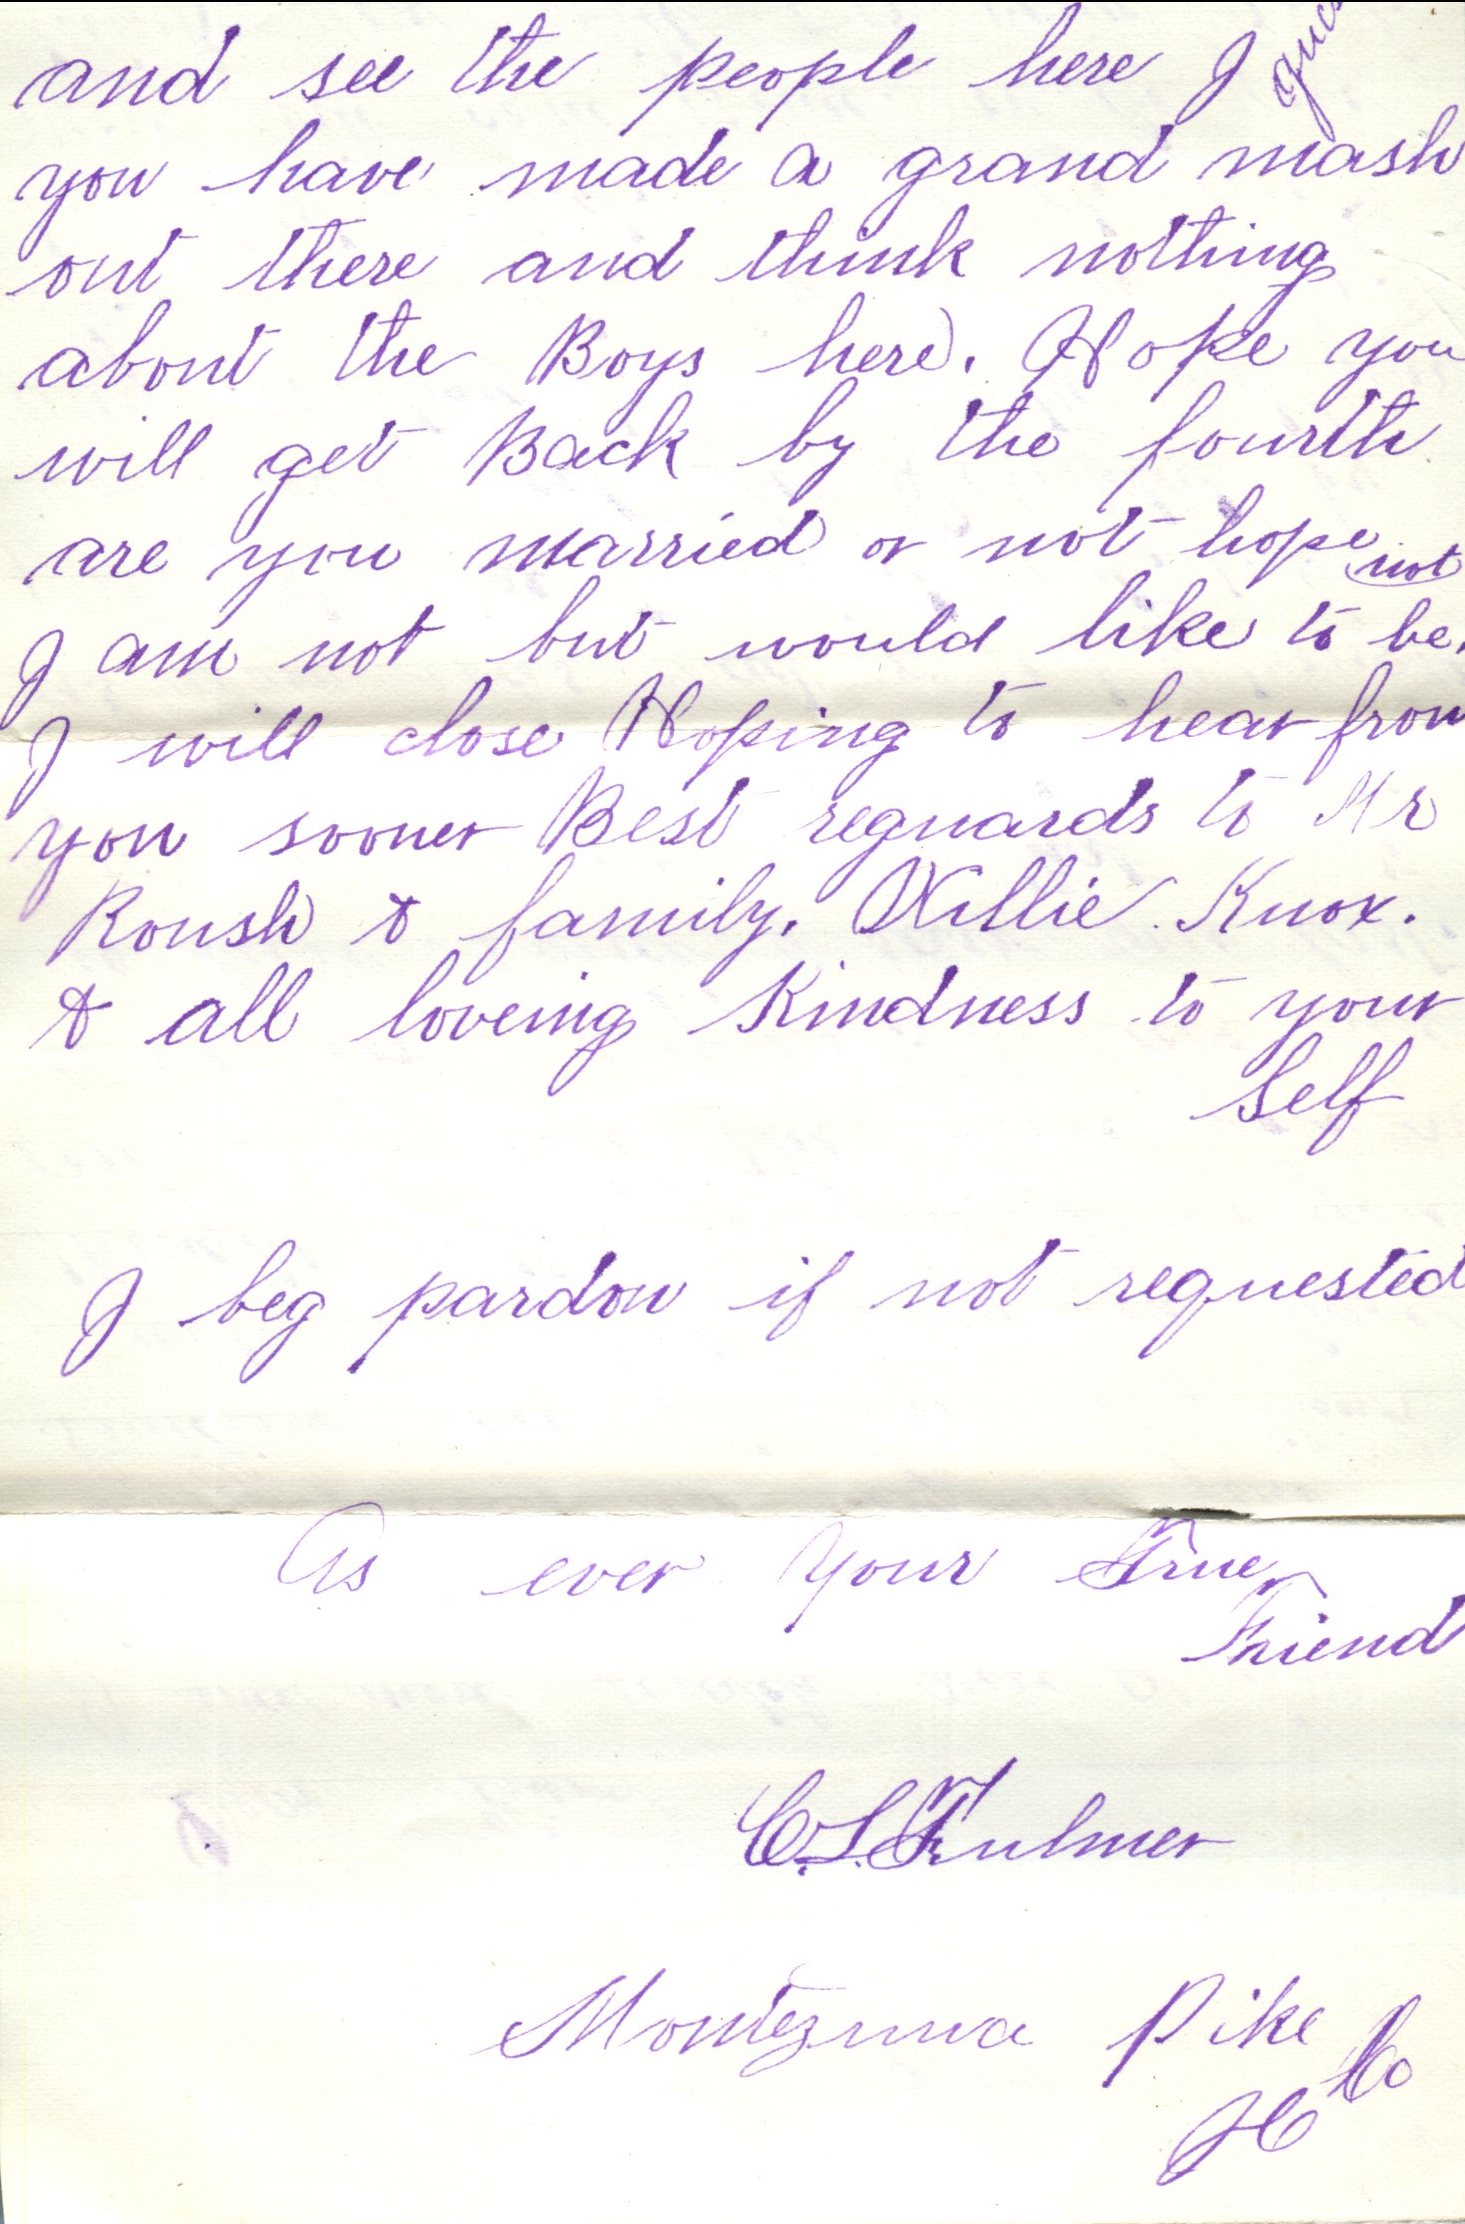 and see the people here I gues
you have made a grand mash
out there and think nothing
about the Boys here. Hope you
will get Back by the fourth
are you married or not hope not
I am not but would like to be.
I will close Hoping to hear from
you sooner Best reguards to Mr
Roush & family. Willie Knox.
& all loveing Kindness to your
Self
I beg pardon if not requested
As ever your True
Friend
C.S. Fulmer
Montezuma Pike Co